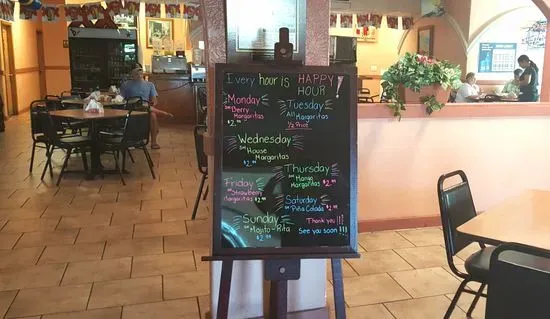 Every hour is HAPPY HOUR
Monday
sm Berry
Margaritas
$2.99
Tuesday
All Margaritas
1/2 Price
Wednesday
sm House
Margaritas
$2.99
Thursday
sm Mango
Margaritas
$2.99
Friday
sm Strawberry
Margaritas $2.99
Saturday
sm Piña Colada $2.99
Sunday
sm Mojito-Rita
$2.99
Thank you!!!
See you soon!!!